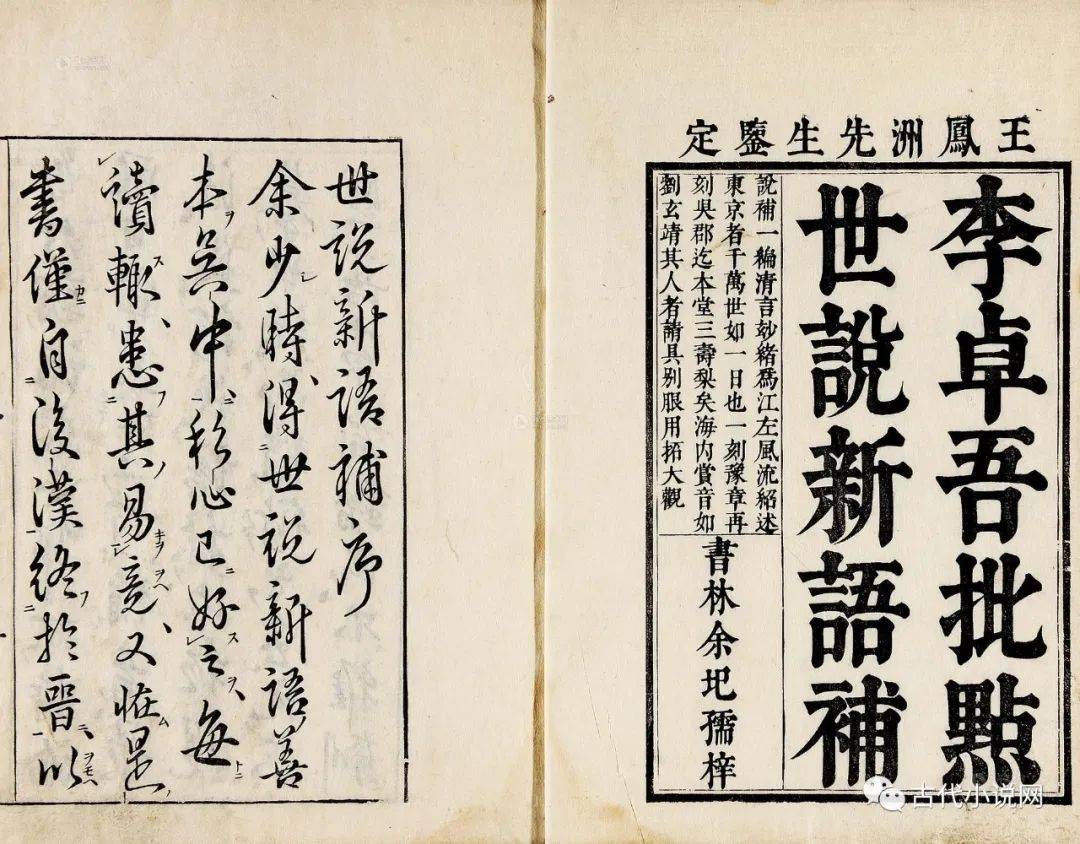 王鳳洲先生鑒定
李卓吾批點
世說新語補
說補一編清言玅緒為江左風流紹述
東京者千萬世如一日也一刻豫章再
刻吳郡迄本堂三壽梨矣海內賞音如
劉玄靖其人者請具別眼用拓大觀
書林余圯孺梓
世說新語補序
余少時得世說新語善
本吳中私心已好之每
讀輒患其易竟又怪是
書僅自後漢終於晉以
古代小说网